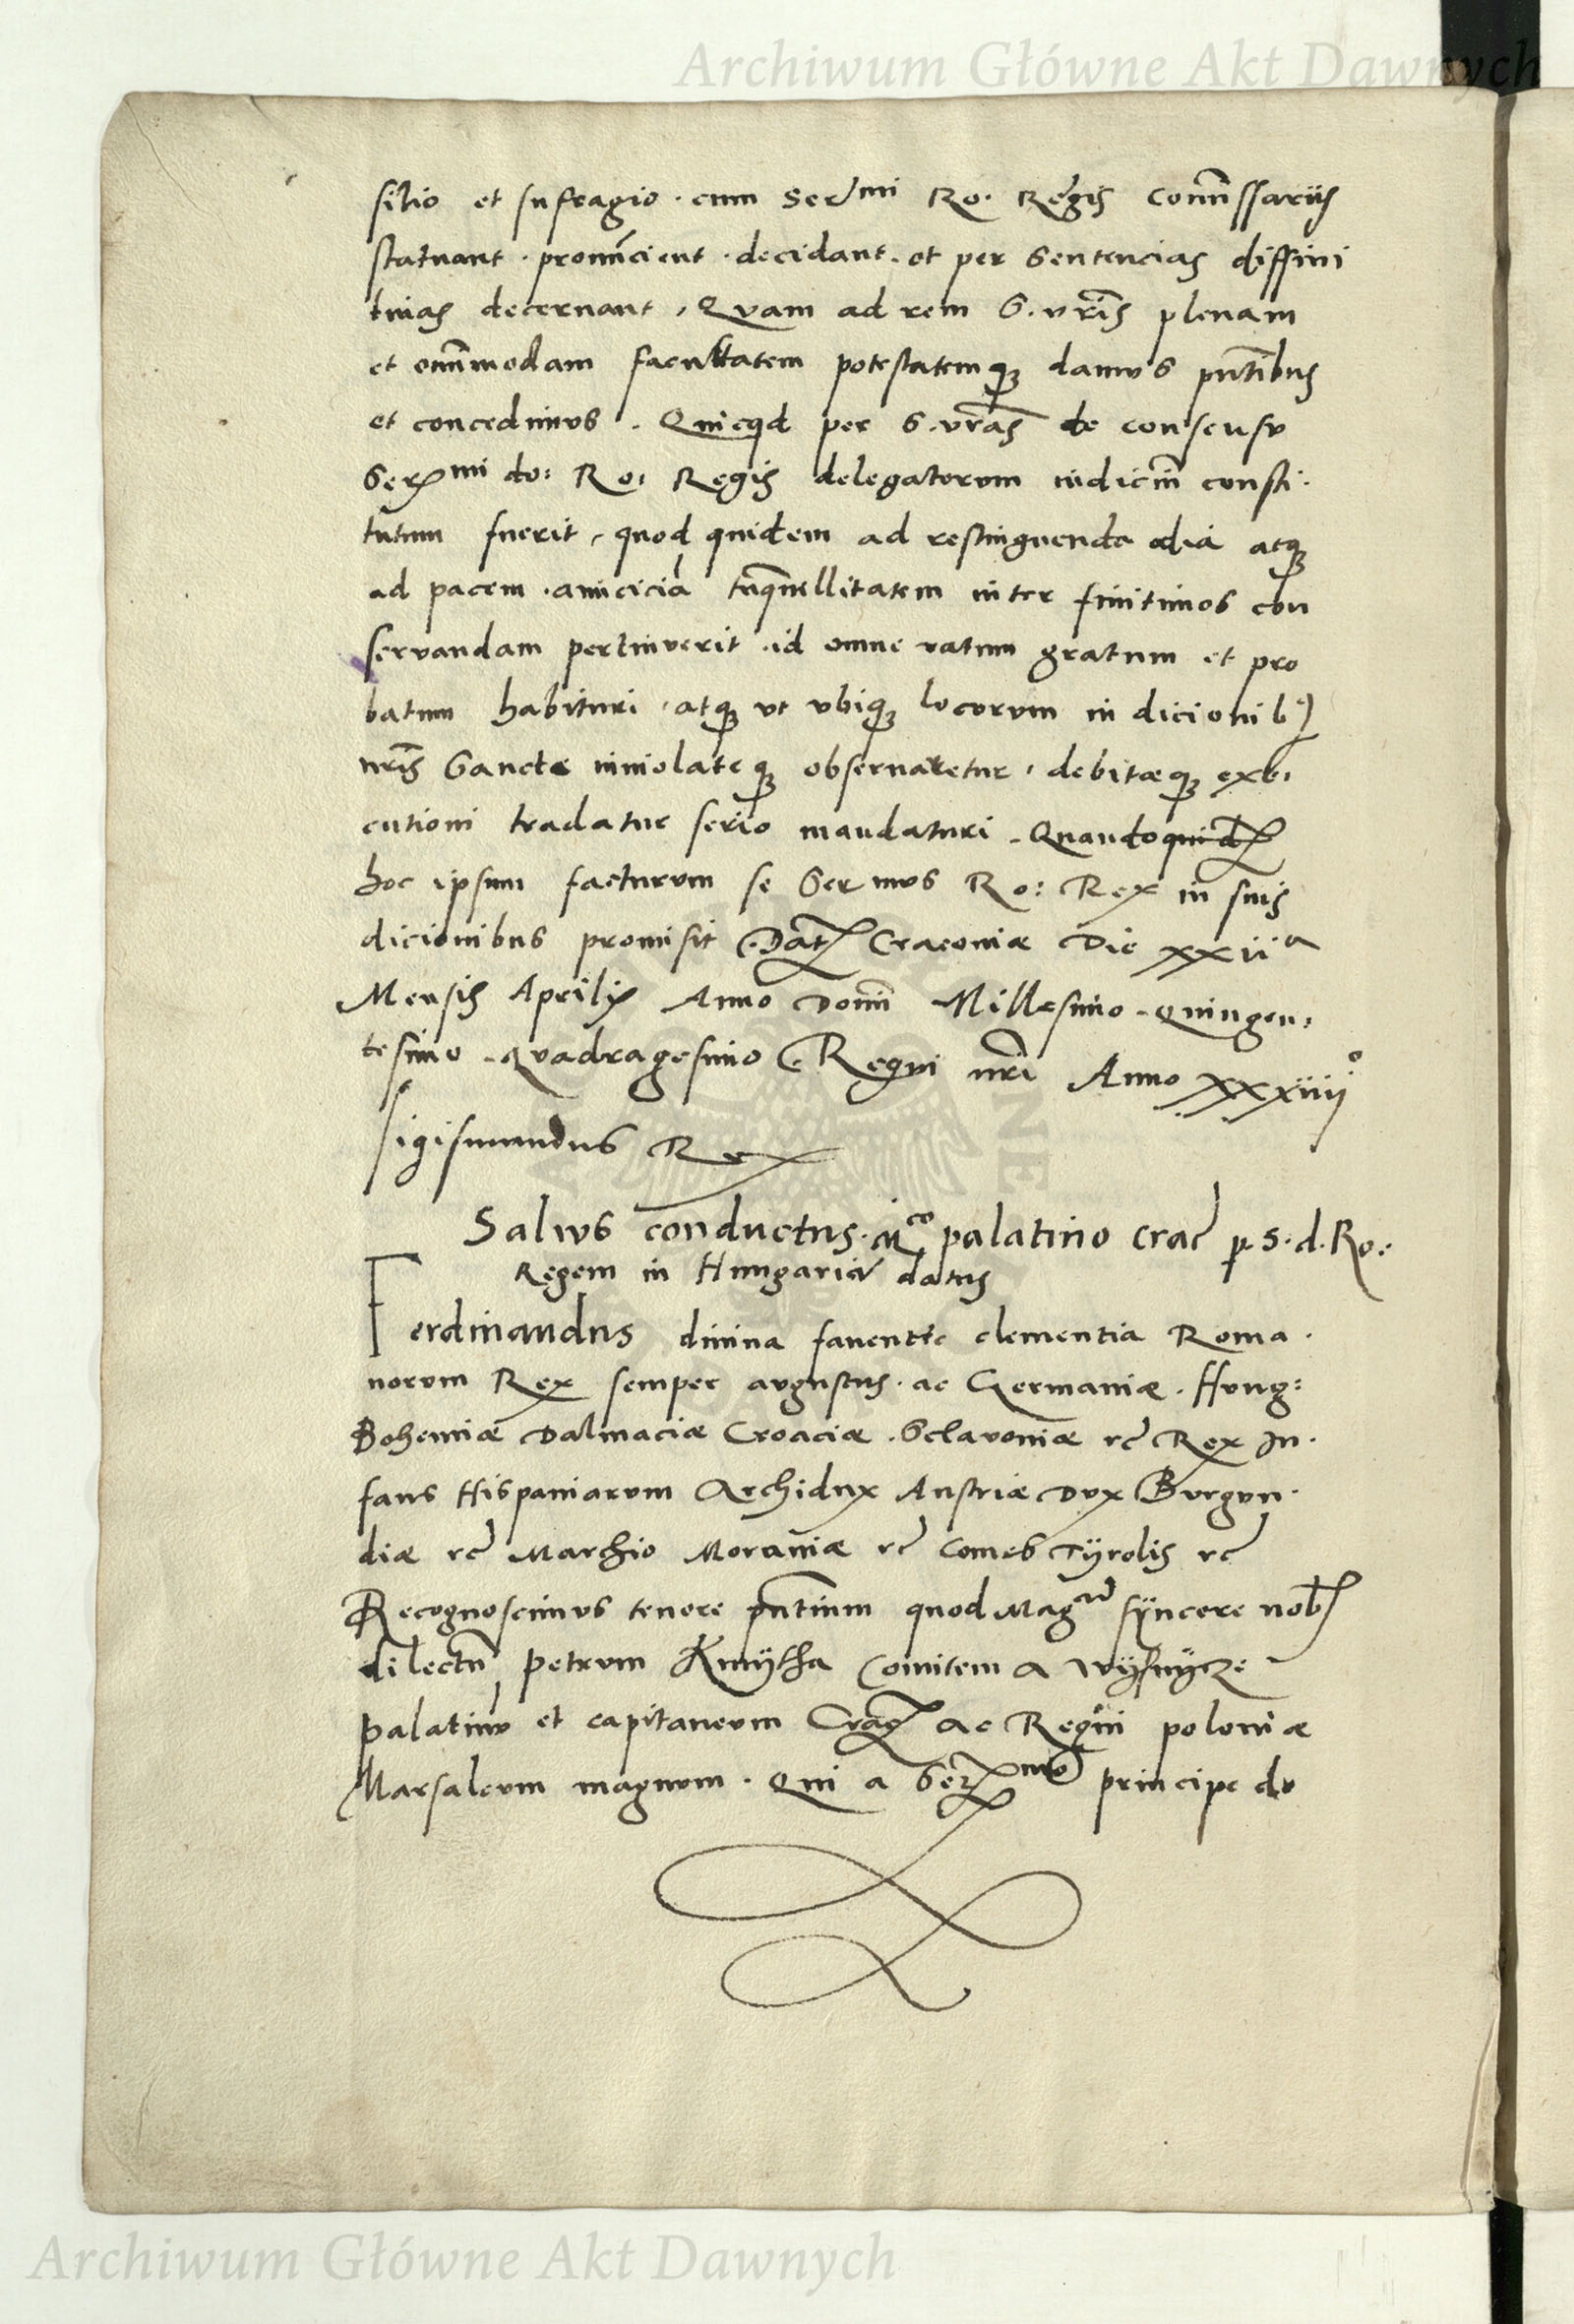 Archiwum Główne Akt Dawnych
silio et sufragio . cum Ser^mi Ro. Regis com̄issariis
statuant . pronūcient . decidant . et per Sentencias diffini
tiuas decernant , Quam ad rem S. vr̄is plenam
et om̄imodam facultatem potestatemq́ꝫ damus pn̄tibus
et concedimus . Quicqd per S. vrās de consensu
Ser^mi do: Ro: Regis delegatorum iudiciū consti.
tutum fuerit , quod quidem ad restinguenda odia atqꝫ
ad pacem . amiciciā tnq̄uillitatem inter finitimos con
servandam pertinverit . id omne ratum gratum et pro
batum habituri , atqꝫ vt vbiqꝫ locorum in dicionib9
nr̄is Sancte inuiolateqꝫ obseruaretur , debitæqꝫ exe,
cutioni tradatur serio mandaturi . Quandoquidē
hoc ipsum facturum se Ser mus Ro: Rex in suis
dicionibus promisit . Dat̄ Cracoviæ Die xxii^a
Mensis Aprilis Anno Domī Millesimo . Quingen,
tesimo . Quadragesimo . Regni nr̄i Anno xxxiiii^o
Sigismundus Rex
Salvus conductus . M^co palatino Crac̄ p. S. d. Ro.
Regem in Hungariā datus
Ferdinandus diuina fauente clementia Roma .
norum Rex semper augustus . ac Germaniæ . Hung:
Bohemiæ Dalmaciæ Croaciæ . Sclavoniæ rc̄ Rex In.
fans Hispaniarum Archidux Austriæ Dux Burgun.
diæ rc̄ Marchio Moraviæ rc̄ Comes Tÿrolis rc̄
Recognoscimus tenore pn̄tium quod Mag^cū sÿncere nob̄
dilectū petrum Kmÿtha Comitem a Wÿsnÿcze
palatinū et capitaneum Crac̄ ac Regni poloniæ
Marsalcum magnum . Qui a Ser^mo principe do
Archiwum Główne Akt Dawnych